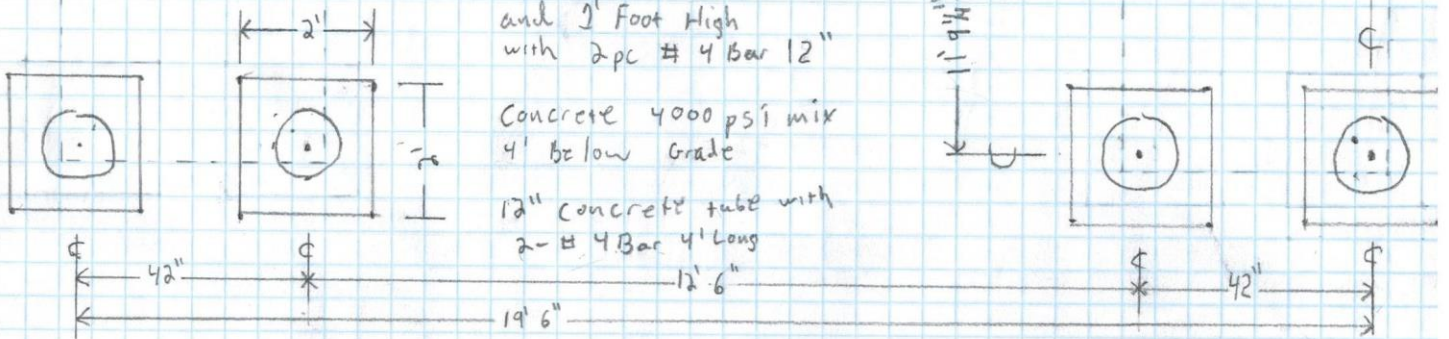 2'
and 1' Foot High
with 2pc # 4 Bar 12"
Concrete 4000 psi mix
4' Below Grade
12" concrete tube with
2-# 4 Bar 4' Long
2'
42"
12' 6"
42"
19' 6"